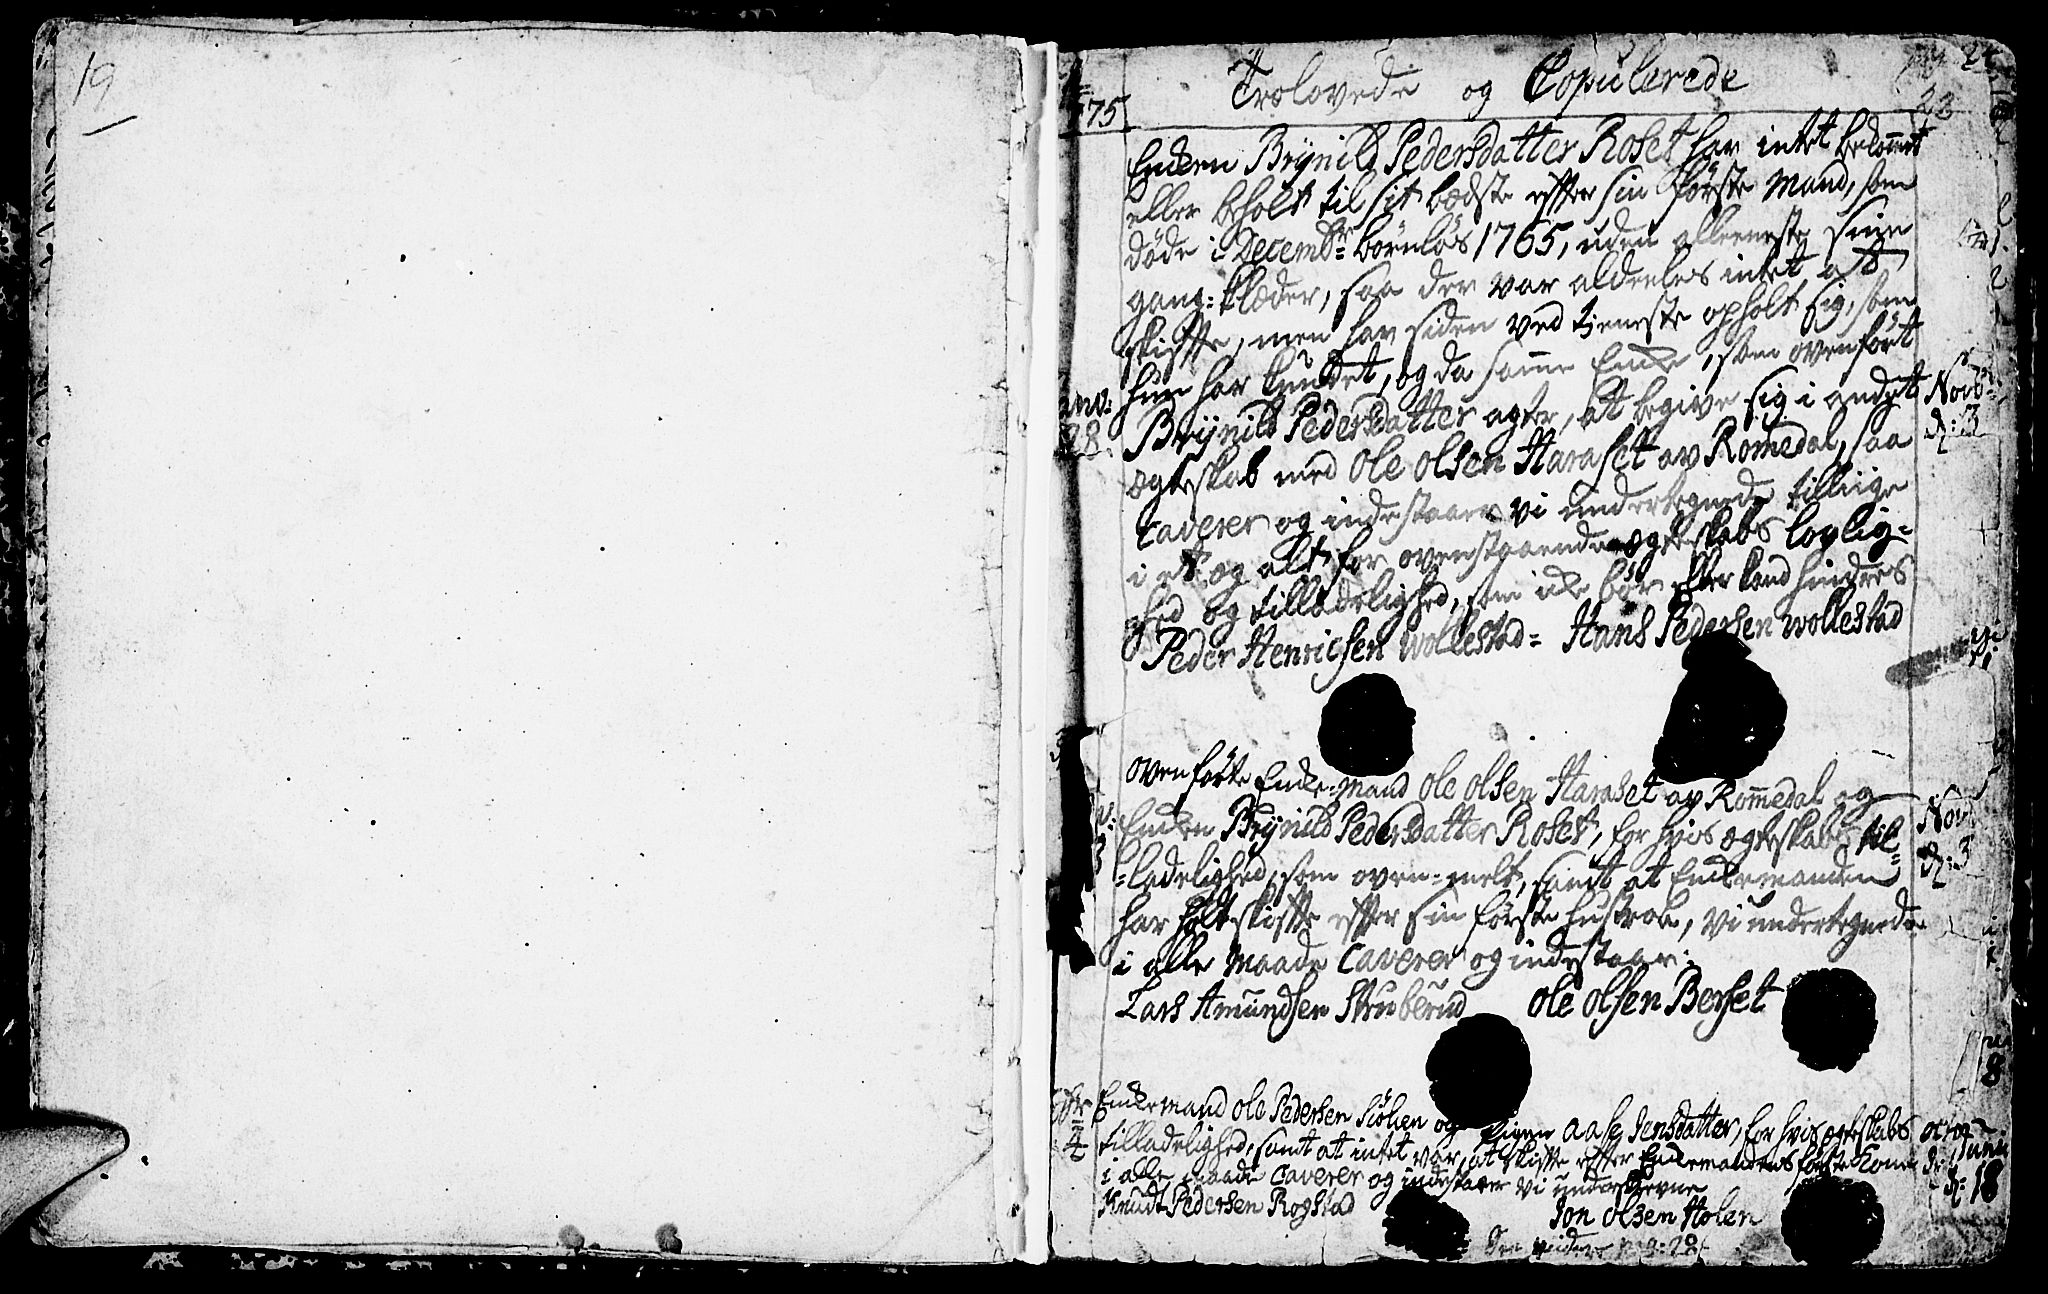 19
Trolovede og Copulerede
23
175
Enken Brynild Pedersdatter Roset har intet bekommet
eller beholt til sit bædste effter sin første Mand, som
døde i Decembr: børnløs 1765, uden alleeneste sine
gang-klæder, saa der var aldeeles intet at
skiffte, men har siden ved tjeneste opholt sig, som
hun har kundet, og da samme Enke, som ovenført
Brynild Pedersdatter agter, at begive sig i andet
ægteskab med Ole Olsen Haraset av Romedal, saa
caverer og indestaaer vi undertegnede tilliige
i et og alt for ovenstaaende ægteskabs lovlig-
hed og tilladelighed, som icke bør eller kand hindres
Peder Henricsen Wollestad= Hans Pedersen Wollestad
28
Novb:
d: 3
ovenførte Enke-mand Ole Olsen Haraset av Rommedal og
Enken Brynild Pedersdatter Roset, for hvis ægteskabs til-
-ladelighed, som oven-melt, samt at Enkemanden
har holt skiffte effter sin første hustrue, vi undertegnede
i alle maade caverer og indestaar.
Lars Amundsen Struberud Ole Olsen Berset
Nov
d: 3
Enkemand Ole Pedersen Siølien og Pigen Aase Jensdatter, for hvis ægteskabs
tilladelighed, samt at intet var, at skiffte effter Enkemandens første kone
i alle maade caverer og indestaaer vi underskrevne
Knudt Pedersen Rogstad Jon Olsen Holen
See videre pag: 28
4
8
18